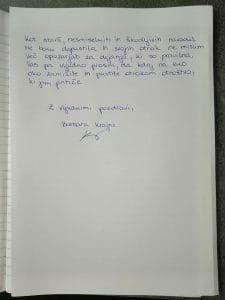 Kot starš, nesmiselnih in škodljivih navodil
ne bom dopustila in svojih otrok ne mislim
več opozarjati za dejanja, ki so pravilna,
Vas pa vljudno prosim, da kdaj na eno
oko zamižite in pustite otrokom otroštvo,
ki jim pritiče.
Z lepimi pozdravi,
Barbara